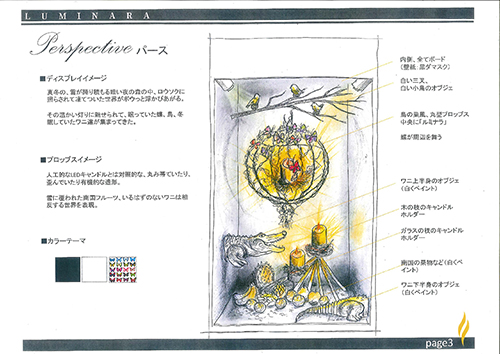 LUMINARA
Perspective パース
■ディスプレイイメージ
真冬の、雪が降り積もる暗い夜の森の中、ロウソクに
照らされて凍てついた世界がボウっと浮かびあがる。
その温かい灯りに魅せられて、眠っていた蝶、鳥、冬
眠していたワニ達が集まってきた。
■プロップスイメージ
人工的なLEDキャンドルとは対照的な、丸み帯ていたり、
歪んでいたり有機的な造形。
雪に覆われた南国フルーツ、いるはずのないワニは相
反する世界を表現。
■カラーテーマ
内張、全てボード
(壁紙 黒ダマスク)
白い三叉、
白い小鳥のオブジェ
鳥の巣風、丸壁プロップス
中央に「ルミナラ」
蝶が周辺を舞う
ワニ上半身のオブジェ
(白くペイント)
木の枝のキャンドル
ホルダー
ガラスの枝のキャンドル
ホルダー
南国の果物など(白くペ
イント)
ワニ下半身のオブジェ
(白くペイント)
page3